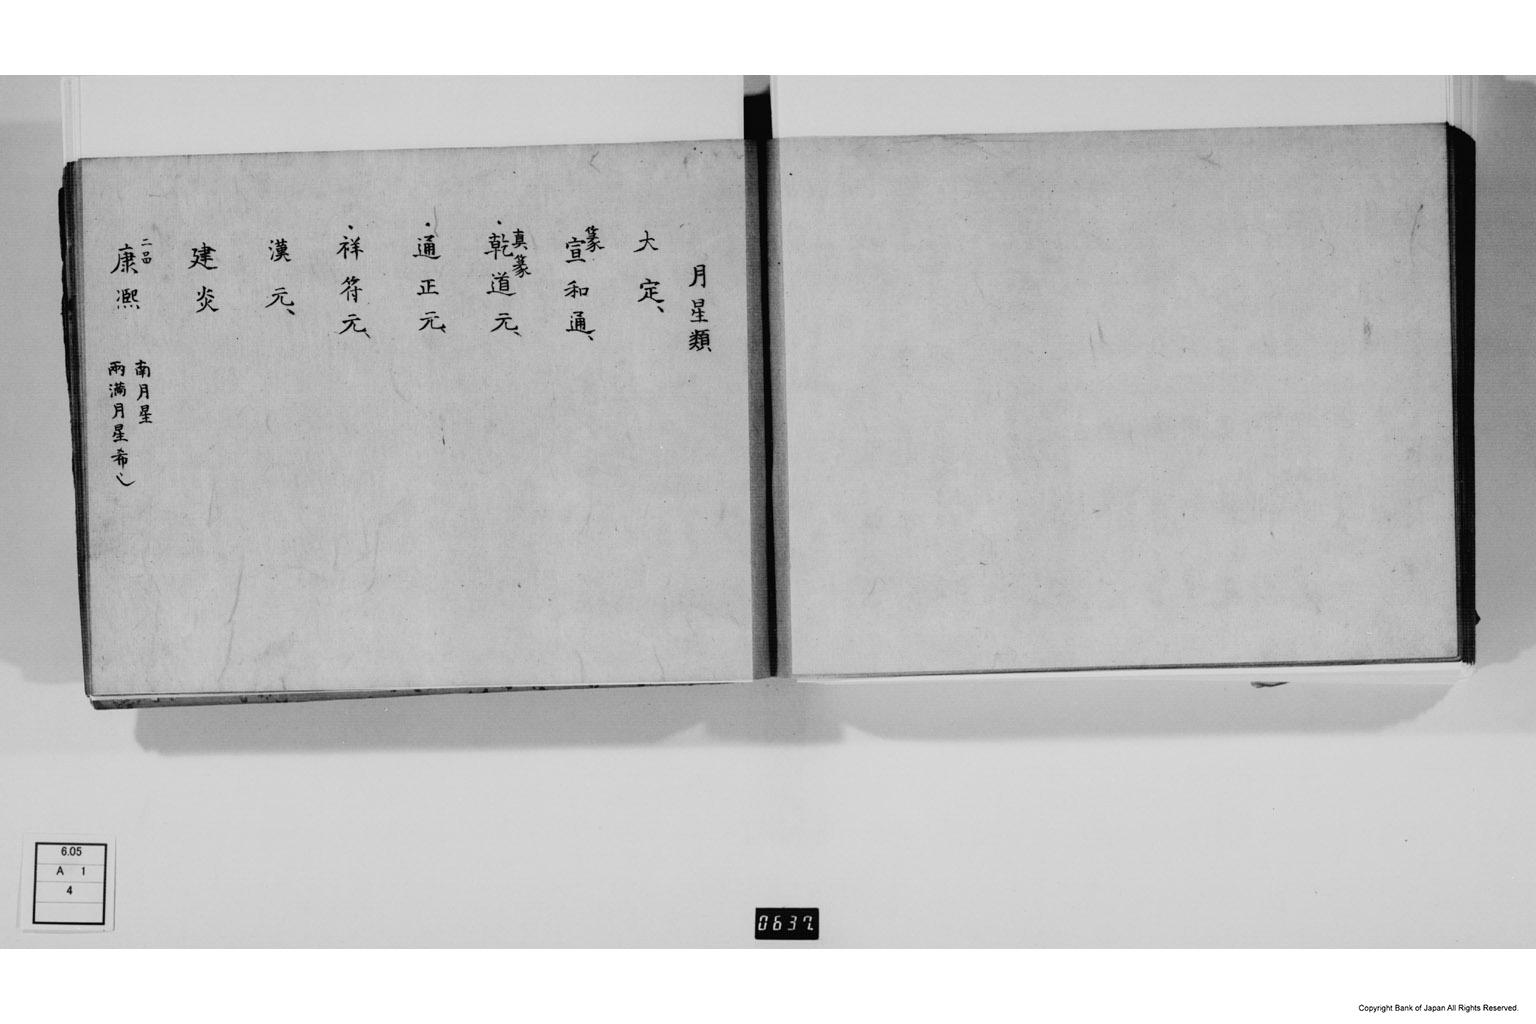 月星類
大定、
篆
宣和通、
真篆
・乾道元、
・通正元、
・祥符元、
漢元、
建炎
二品
康熙
南月星
両満月星希心
6.05
A 1
4
0637
Copyright Bank of Japan All Rights Reserved.